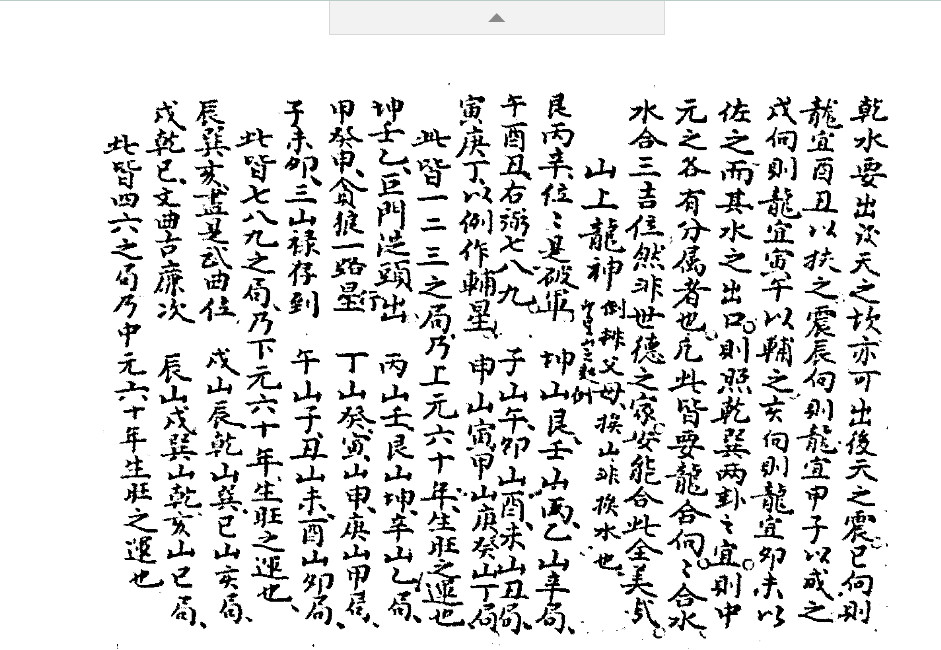 乾水要出次天之坎亦可出後天之震巳向則
龍宜酉丑以扶之震辰向則龍宜甲子以成之
戌向則龍宜寅午以輔之亥向則龍宜卯未以
佐之而其水之出口則照乾巽两卦之宜則中
元之各有分属者也凡此皆要龍合向向合水
水合三吉位然非世德之家安能合此全美哉
山上龍神 倒排父母換山非換水也
艮丙辛位位是破軍 坤山艮壬山丙乙山辛局
午酉丑右弼七八九 子山午卯山酉未山丑局
寅庚丁以例作輔星 申山寅甲山庚癸山丁局
此皆一二三之局乃上元六十年生旺之運也
坤壬乙巨門從頭出行 丙山壬艮山坤辛山乙局
甲癸申貪狼一路星 丁山癸寅山申庚山甲局
子未卯三山祿存到 午山子丑山未酉山卯局
此皆七八九之局乃下元六十年生旺之運也
辰巽亥盡是武曲位 戌山辰乾山巽巳山亥局
戌乾巳文曲古廉次 辰山戌巽山乾亥山巳局
此皆四六之局乃中元六十年生旺之運也